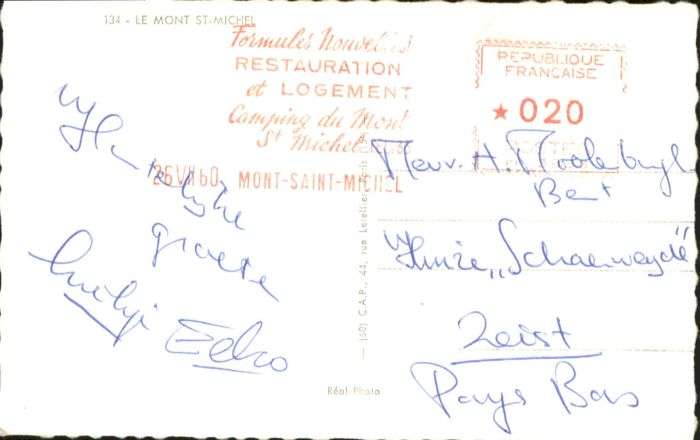 134 - LE MONT ST-MICHEL
Formules Nouvelles
RESTAURATION
et LOGEMENT
Camping du Mont
St Michel
26 VII 60 MONT-SAINT-MICHEL
REPUBLIQUE
FRANCAISE
★ 020
Hartelijke
groeten
Eelco
Mevr. H.
Huize „Schaerweyde”
Zeist
Pays Bas
(60) C.A.P., 44, rue
Réal-Photo